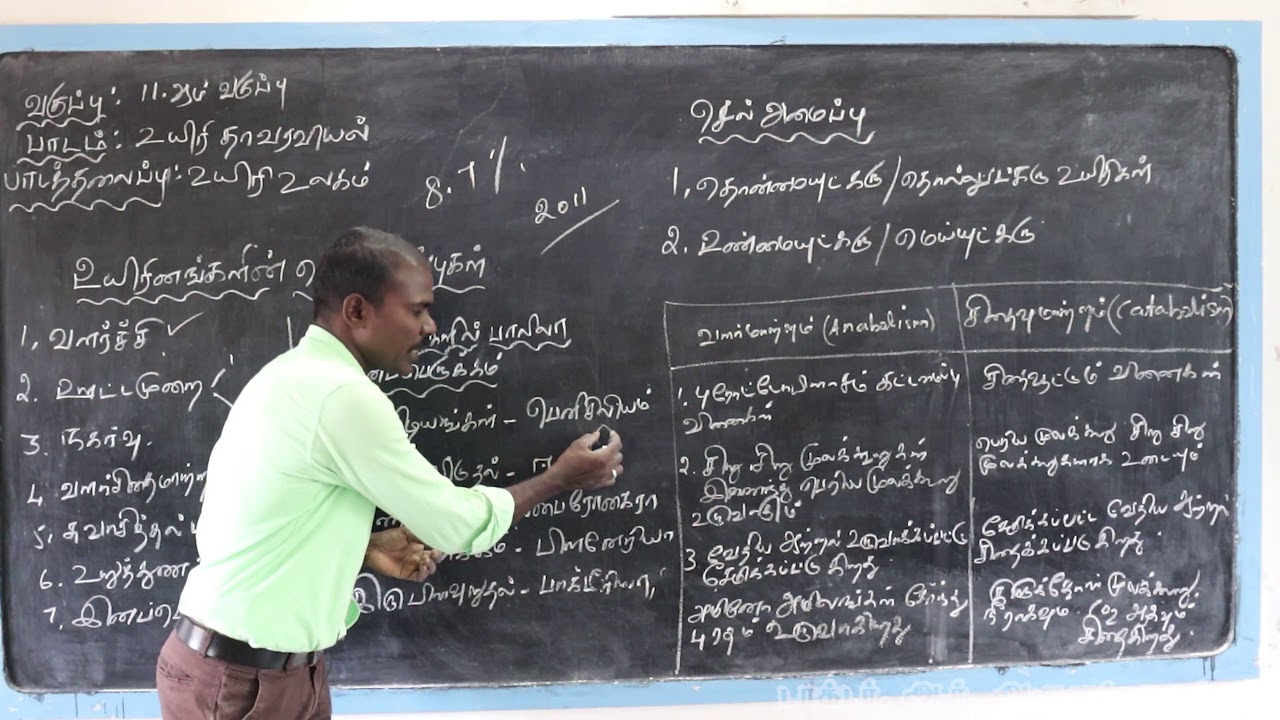 வகுப்பு: 11.ஆம் வகுப்பு
பாடம்: உயிரி தாவரவியல்
பாடத்தலைப்பு: உயிரி உலகம்
8.7%
2011
உயிரினங்களின்
1, வளர்ச்சி ✓
2. ஊட்டமுறை
3. நகர்வு.
4. வளர்சிதைமாற்ற
5, சுவாசித்தல்
6. உறுத்துண
7, இனப்பெ
களில் பாலிலா
னப்பெருக்கம்
– பெனிசிலியம்
விடுதல் –
– பிளனேரியா
இரு பிளவுறுதல் – பாக்டீரியா,
செல் அமைப்பு
1, தொன்மையுட்கரு / தொல்லுட்கரு உயிரிகள்
2. உண்மையுட்கரு / மெய்யுட்கரு
வளர்மாற்றம் (Anabalism)
சிதைவுமாற்றம் (Catabalism)
1. புரோட்டோபிளாசம் கட்டமைப்பு
வினைகள்
சிதைவூட்டும் வினைகள்
2. சிறு சிறு மூலக்கூறுகள்
இணைந்து பெரிய மூலக்கூறு
உருவாகும்
பெரிய மூலக்கூறு சிறு சிறு
மூலக்கூறுகளாக உடையும்
3. வேதிய ஆற்றல் உருவாக்கப்பட்டு
சேமிக்கப்பட்டு கிறது.
சேமிக்கப்பட்ட வேதிய ஆற்றல்
சிதைக்கப்படு கிறது.
அமினோ அமிலங்கள் சேர்ந்து
புரதம் உருவாகிறது
குளுக்கோஸ் மூலக்கூறு
நீராகவும் CO2 ஆகவும்
சிதைகிறது.